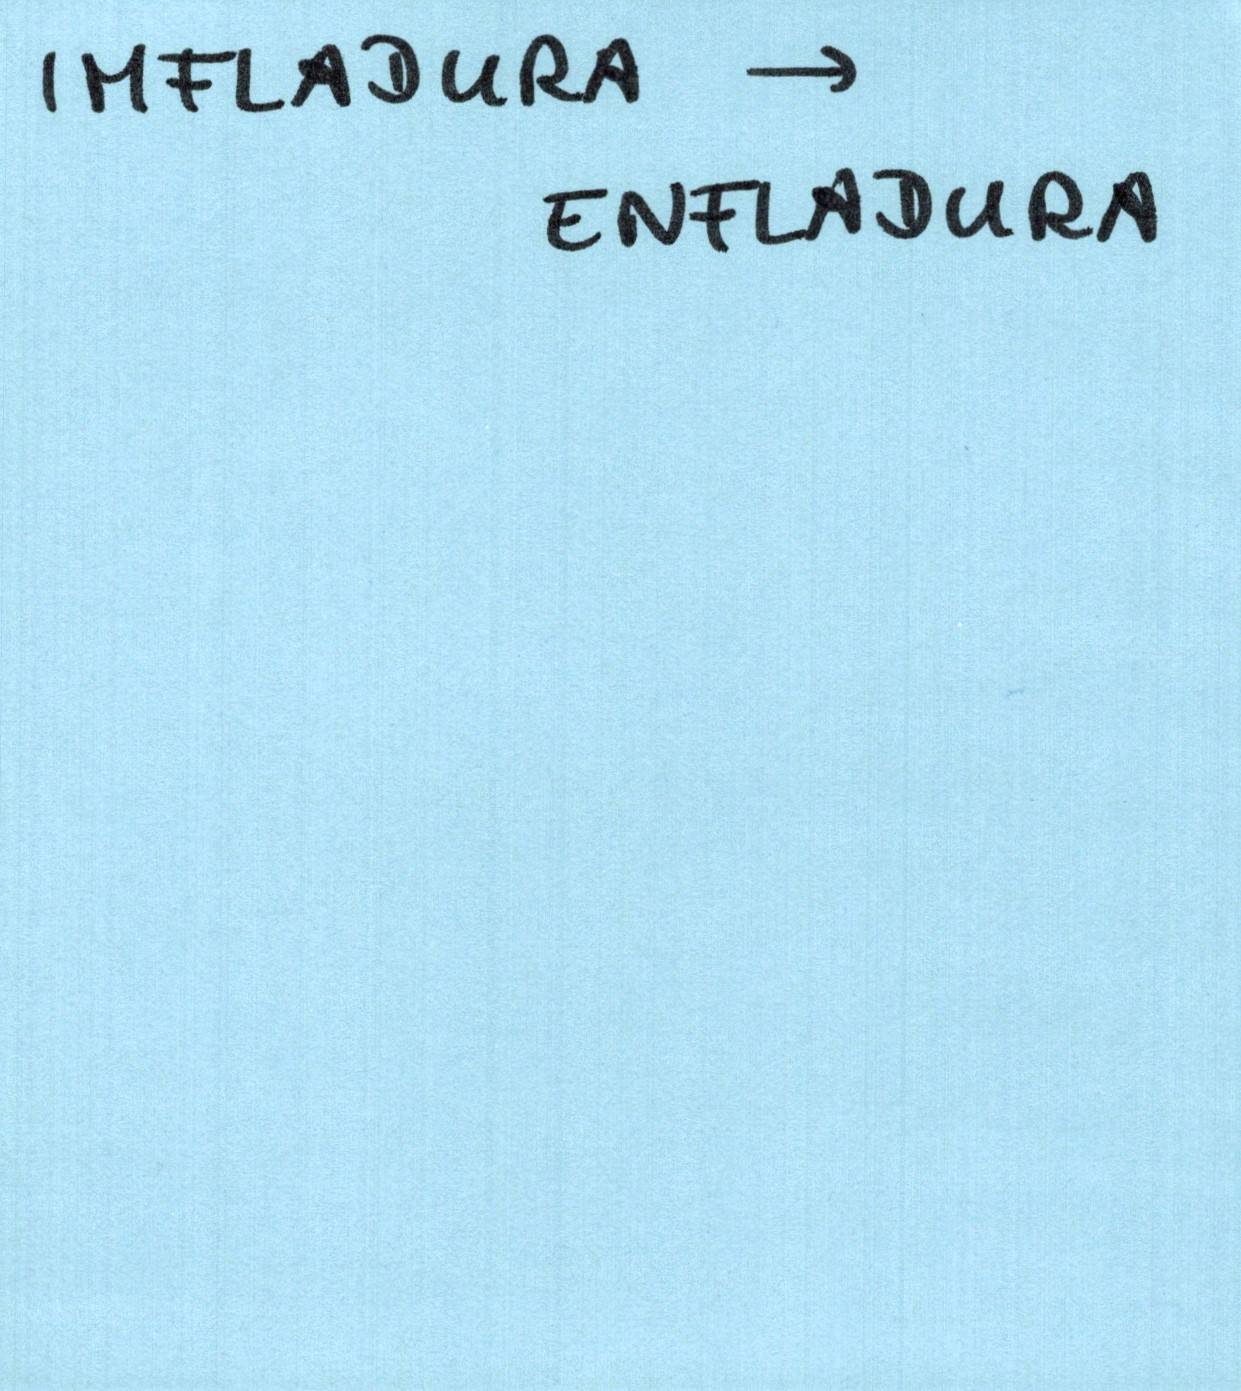 IMFLADURA →
ENFLADURA